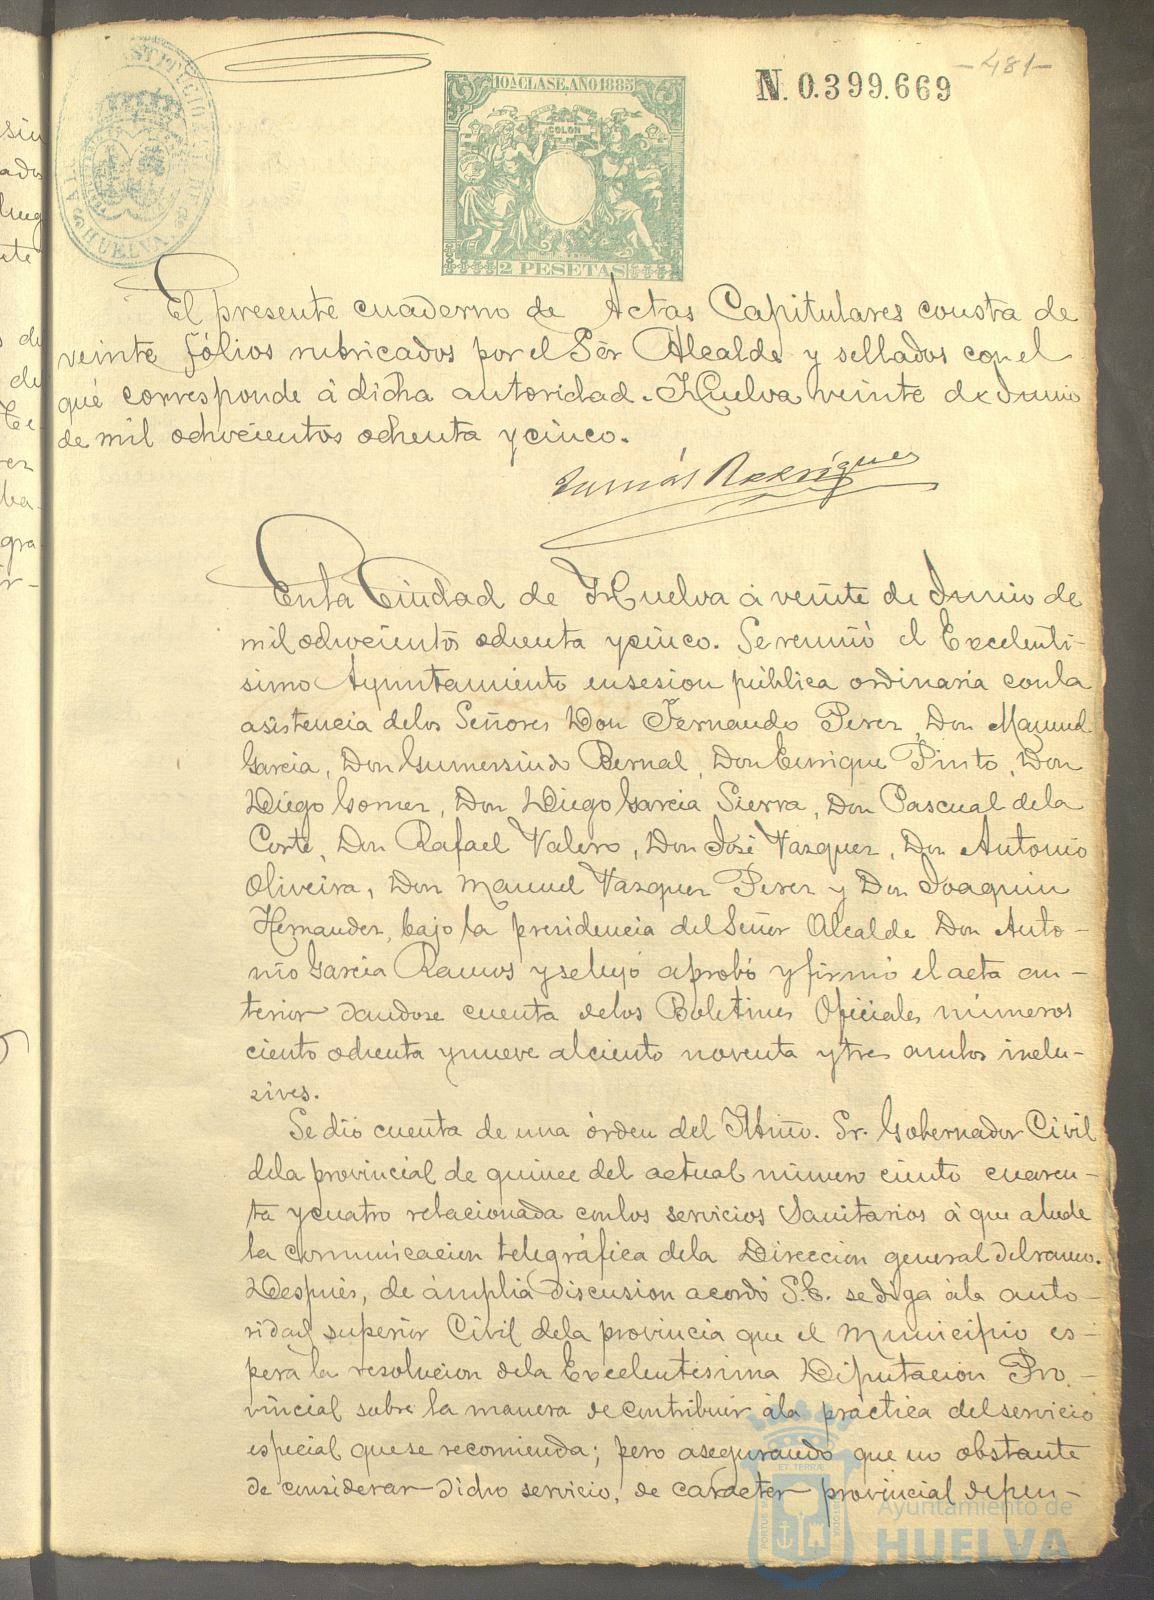 -481-
N. 0.399.669
10ª CLASE, AÑO 1885
COLON
2 PESETAS
HUELVA
El presente cuaderno de Actas Capitulares consta de
veinte fólios rubricados por el Sõr Alcalde y sellados con el
qué corresponde á dicha autoridad. Huelva veinte de Junio
de mil ochocientos ochenta y cinco.
Tomás Rodríguez
En la Ciudad de Huelva á veinte de Junio de
mil ochocientos ochenta y cinco. Se reunió el Excelentí-
simo Ayuntamiento en sesion pública ordinaria con la
asistencia de los Señores Don Fernando Perez, Don Manuel
Garcia, Don Gumersindo Bernal, Don Enrique Pinto, Don
Diego Gomez, Don Diego Garcia Sierra, Don Pascual de la
Corte, Don Rafael Valero, Don José Vazquez, Don Antonio
Oliveira, Don Manuel Vazquez Perez y Don Joaquin
Hernandez, bajo la presidencia del Señor Alcalde Don Anto-
nio Garcia Ramos y se leyó aprobó y firmó el acta an-
terior dandose cuenta de los Boletines Oficiales números
ciento ochenta y nueve al ciento noventa y tres ambos inclu-
sives.
Se dió cuenta de una órden del Iltmo. Sr. Gobernador Civil
de la provincial de quince del actual número ciento cuaren-
ta y cuatro relacionada con los servicios Sanitarios á que alude
la comunicacion telegráfica de la Direccion general del ramo.
Despues, de ámplia discusion acordó S.E. se diga á la auto-
ridad superior Civil de la provincia que el Municipio es-
pera la resolucion de la Excelentísima Diputacion Pro-
vincial sobre la manera de contribuir á la práctica del servicio
especial que se recomienda; pero asegurando que no obstante
de considerar dicho servicio, de carácter provincial depen-
Ayuntamiento de
HUELVA